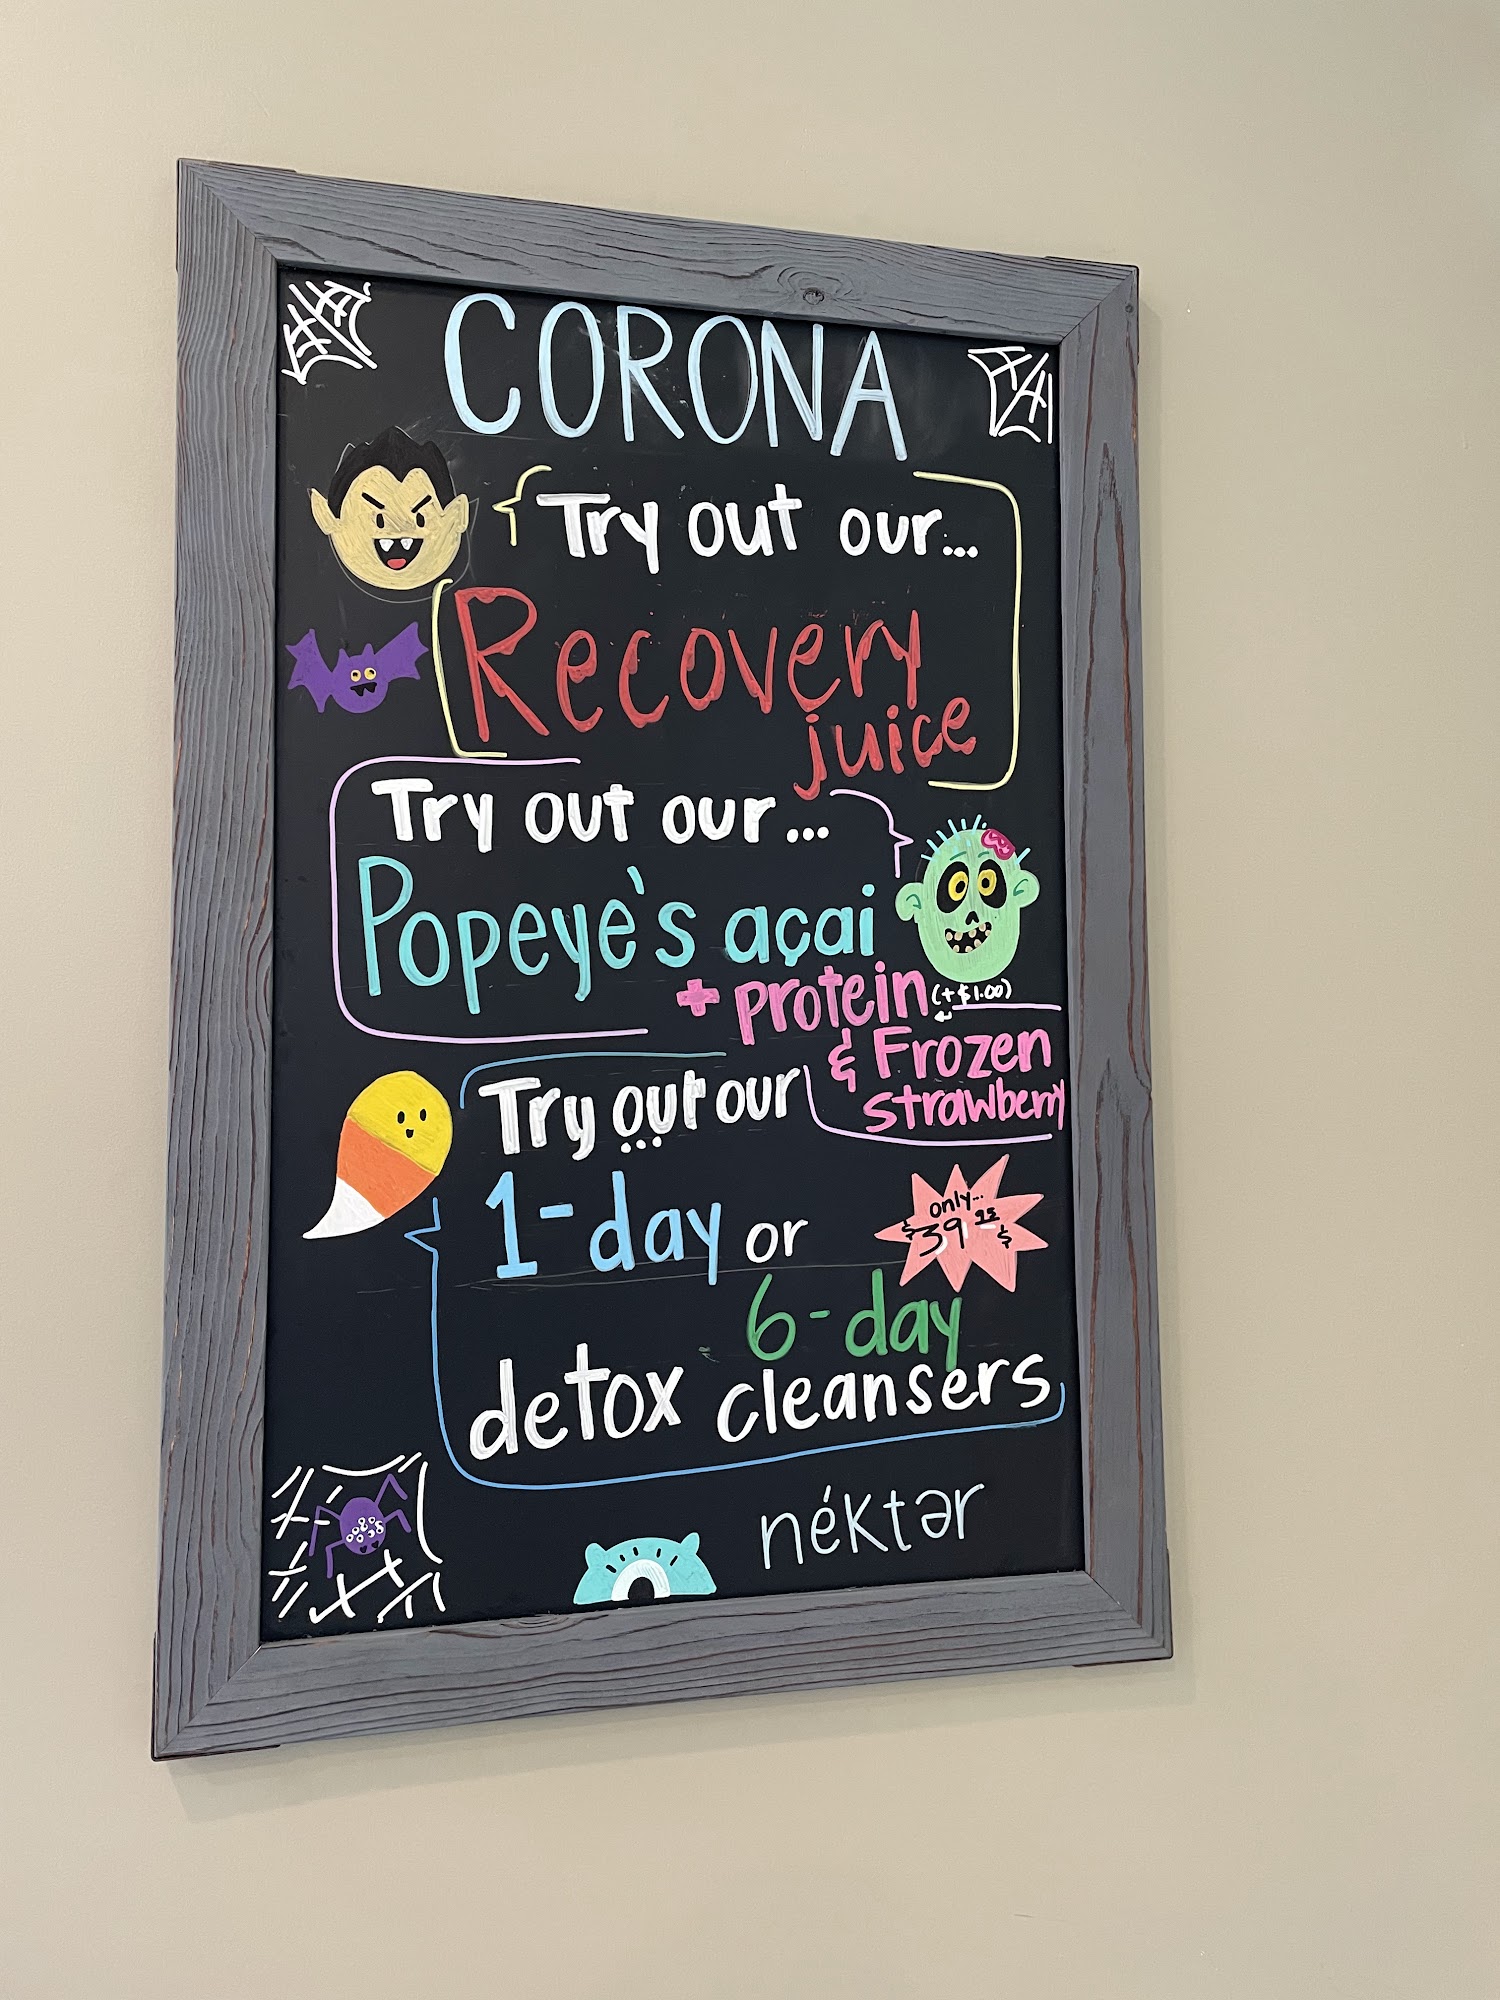 CORONA
Try out our...
Recovery
juice
Try out our...
Popeye's açai
+ protein (+$1.00)
& Frozen
strawberry
Try out our
...
1-day or
only...
$39.95$
6-day
detox cleansers
néktər